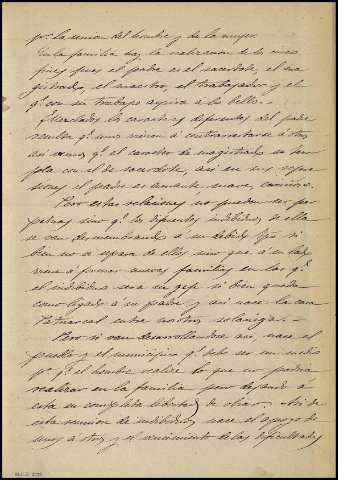 pr. la union del hombre y de la mujer.
En la familia hay la realizacion de los cinco
fines pues el padre es el sacerdote, el ma
gistrado, el maestro, el trabajador y el
q.e con su trabajo aspira a lo bello.—
Mezclados los caracteres diferentes del padre
resulta q.e unos vienen á contrarrestarse á otros
asi vemos q.e el caracter de magistrado se tem
pla con el de sacerdote, asi en sus repren
siones el padre es amante, suave, cariñoso.
Pero estas relaciones no pueden ser per
petuas sino q.e los diferentes individuos de ella
se van desmembrando á su debido tpo. si
bien no se separa de ellos sino que á su lado
viene á formar nuevas familias en las q.e
el individuo sera su gefe si bien queda
como ligado á su padre y asi nace la casa
Patriarcal entre nosotros solariega.—
Pero si van desarrollandose asi, nace el
pueblo y el municipio q.e debe ser un medio
pa. q.e el hombre realice lo que no podria
realizar en la familia pero dejando á
esta en completa libertad de obrar. Asi de
esta reunion de individuos nace el apoyo de
unos á otros y el vencimiento de las dificultades